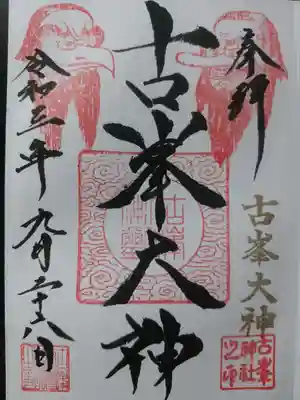 奉拝
古峯大神
古峯大神
古峯
神社
之印
令和三年
九月二十八日